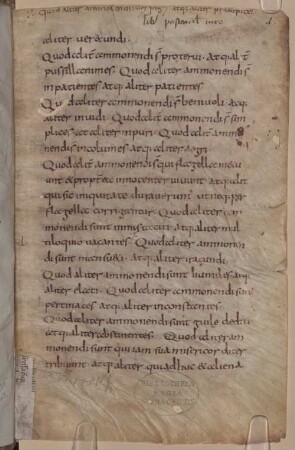 aliter verecundi.
Quod aliter ammonendi sunt proterui. atqualit
pusillanimes. Quod aliter ammonendi
inpatientes atqualiter patientes
Quod aliter ammonendi sunt beniuoli atq
aliter inuidi. Quod aliter ammonendi sunt sim
plices, et aliter inpuri. Quod aliter ammo
nendi sint incolumes atq aliter aegri
Quod aliter ammonendi qui flagella metu
unt & propterea innocenter uiuunt atq aliter
qui sic iniquitate duruerunt ut neq per
flagella corrigantur. Quod aliter am
monendi sunt nimis taciti atq aliter mul
tiloquio uacantes Quod aliter ammonen
di sunt mansueti. atq aliter iracundi.
Quod aliter ammonendi sunt humiles atq
aliter elati. Quod aliter ammonendi sunt
pertinaces atq aliter inconstantes
Quod aliter ammonendi sint gule dediti
atq aliter abstinentes. Quod aliter am
monendi sunt qui iam sua misericorditer
tribuunt atq aliter qui adhuc & aliena
BIBLIOTHECA
REGIA
MONACENSIS